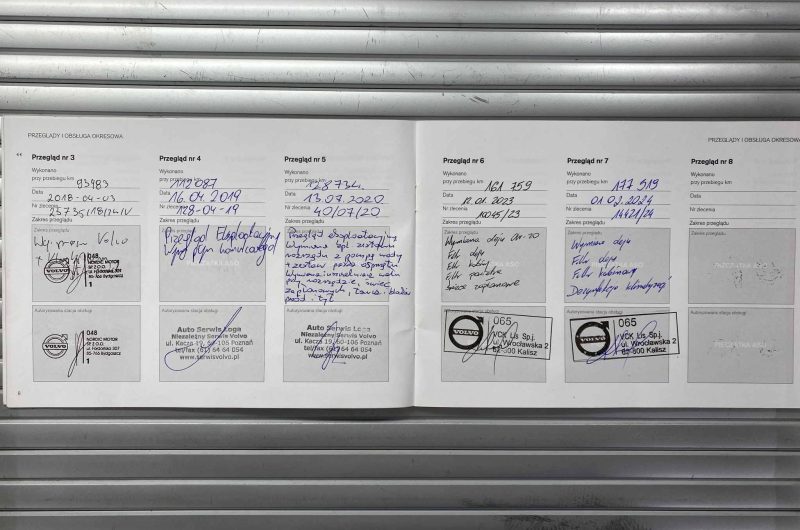 PRZEGLĄDY I OBSŁUGA OKRESOWA
Przegląd nr 3
Wykonano
przy przebiegu km 93983
Data 2018-04-03
Nr zlecenia
Zakres przeglądu
Zakres przeglądu
Volvo
VOLVO
048
NORDIC MOTOR
SP. Z O.O.
ul. Fordońska 307
85-766 Bydgoszcz
1
Autoryzowana stacja obsługi
VOLVO
048
NORDIC MOTOR
SP. Z O.O.
ul. Fordońska 307
85-766 Bydgoszcz
1
8
Przegląd nr 4
Wykonano
przy przebiegu km 112087
Data 16.04.2019
Nr zlecenia 128-04-19
Zakres przeglądu
Przegląd Eksploatacyjny
Wym. płyn hamulcowy
Autoryzowana stacja obsługi
Auto Serwis Łoga
Niezależny Serwis Volvo
ul. Kacza 19, 60-105 Poznań
tel/fax (61) 64 64 054
www.serwisvolvo.pl
Przegląd nr 5
Wykonano
przy przebiegu km 128734
Data 13.07.2020
Nr zlecenia 40/07/20
Zakres przeglądu
Przegląd eksploatacyjny
Wymieniono był zestaw
rozrządu z pompą wody
+ zestaw paska osprzętu
Autoryzowana stacja obsługi
Auto Serwis Łoga
Niezależny Serwis Volvo
ul. Kacza 19, 60-105 Poznań
tel/fax (61) 64 64 054
www.serwisvolvo.pl
PRZEGLĄDY I OBSŁUGA OKRESOWA
Przegląd nr 6
Wykonano
przy przebiegu km 161 759
Data 12.01.2023
Nr zlecenia 10045/23
Zakres przeglądu
Wymiana oleju 0W-20
Filtr oleju
Filtr kabiny
Filtr powietrza
Świece zapłonowe
VOLVO
065
VCX Lis Sp.j.
ul. Wrocławska 2
62-800 Kalisz
Przegląd nr 7
Wykonano
przy przebiegu km 177 519
Data 01.02.2024
Nr zlecenia 14421/24
Zakres przeglądu
Wymiana oleju
Filtr oleju
Filtr kabinowy
Dezynfekcja klimatyzacji
Autoryzowana stacja obsługi
VOLVO
065
VCX Lis Sp.j.
ul. Wrocławska 2
62-800 Kalisz
Przegląd nr 8
Wykonano
przy przebiegu km
Data
Nr zlecenia
Zakres przeglądu
Zakres przeglądu
PIECZĄTKA ASO
Autoryzowana stacja obsługi
PIECZĄTKA ASO